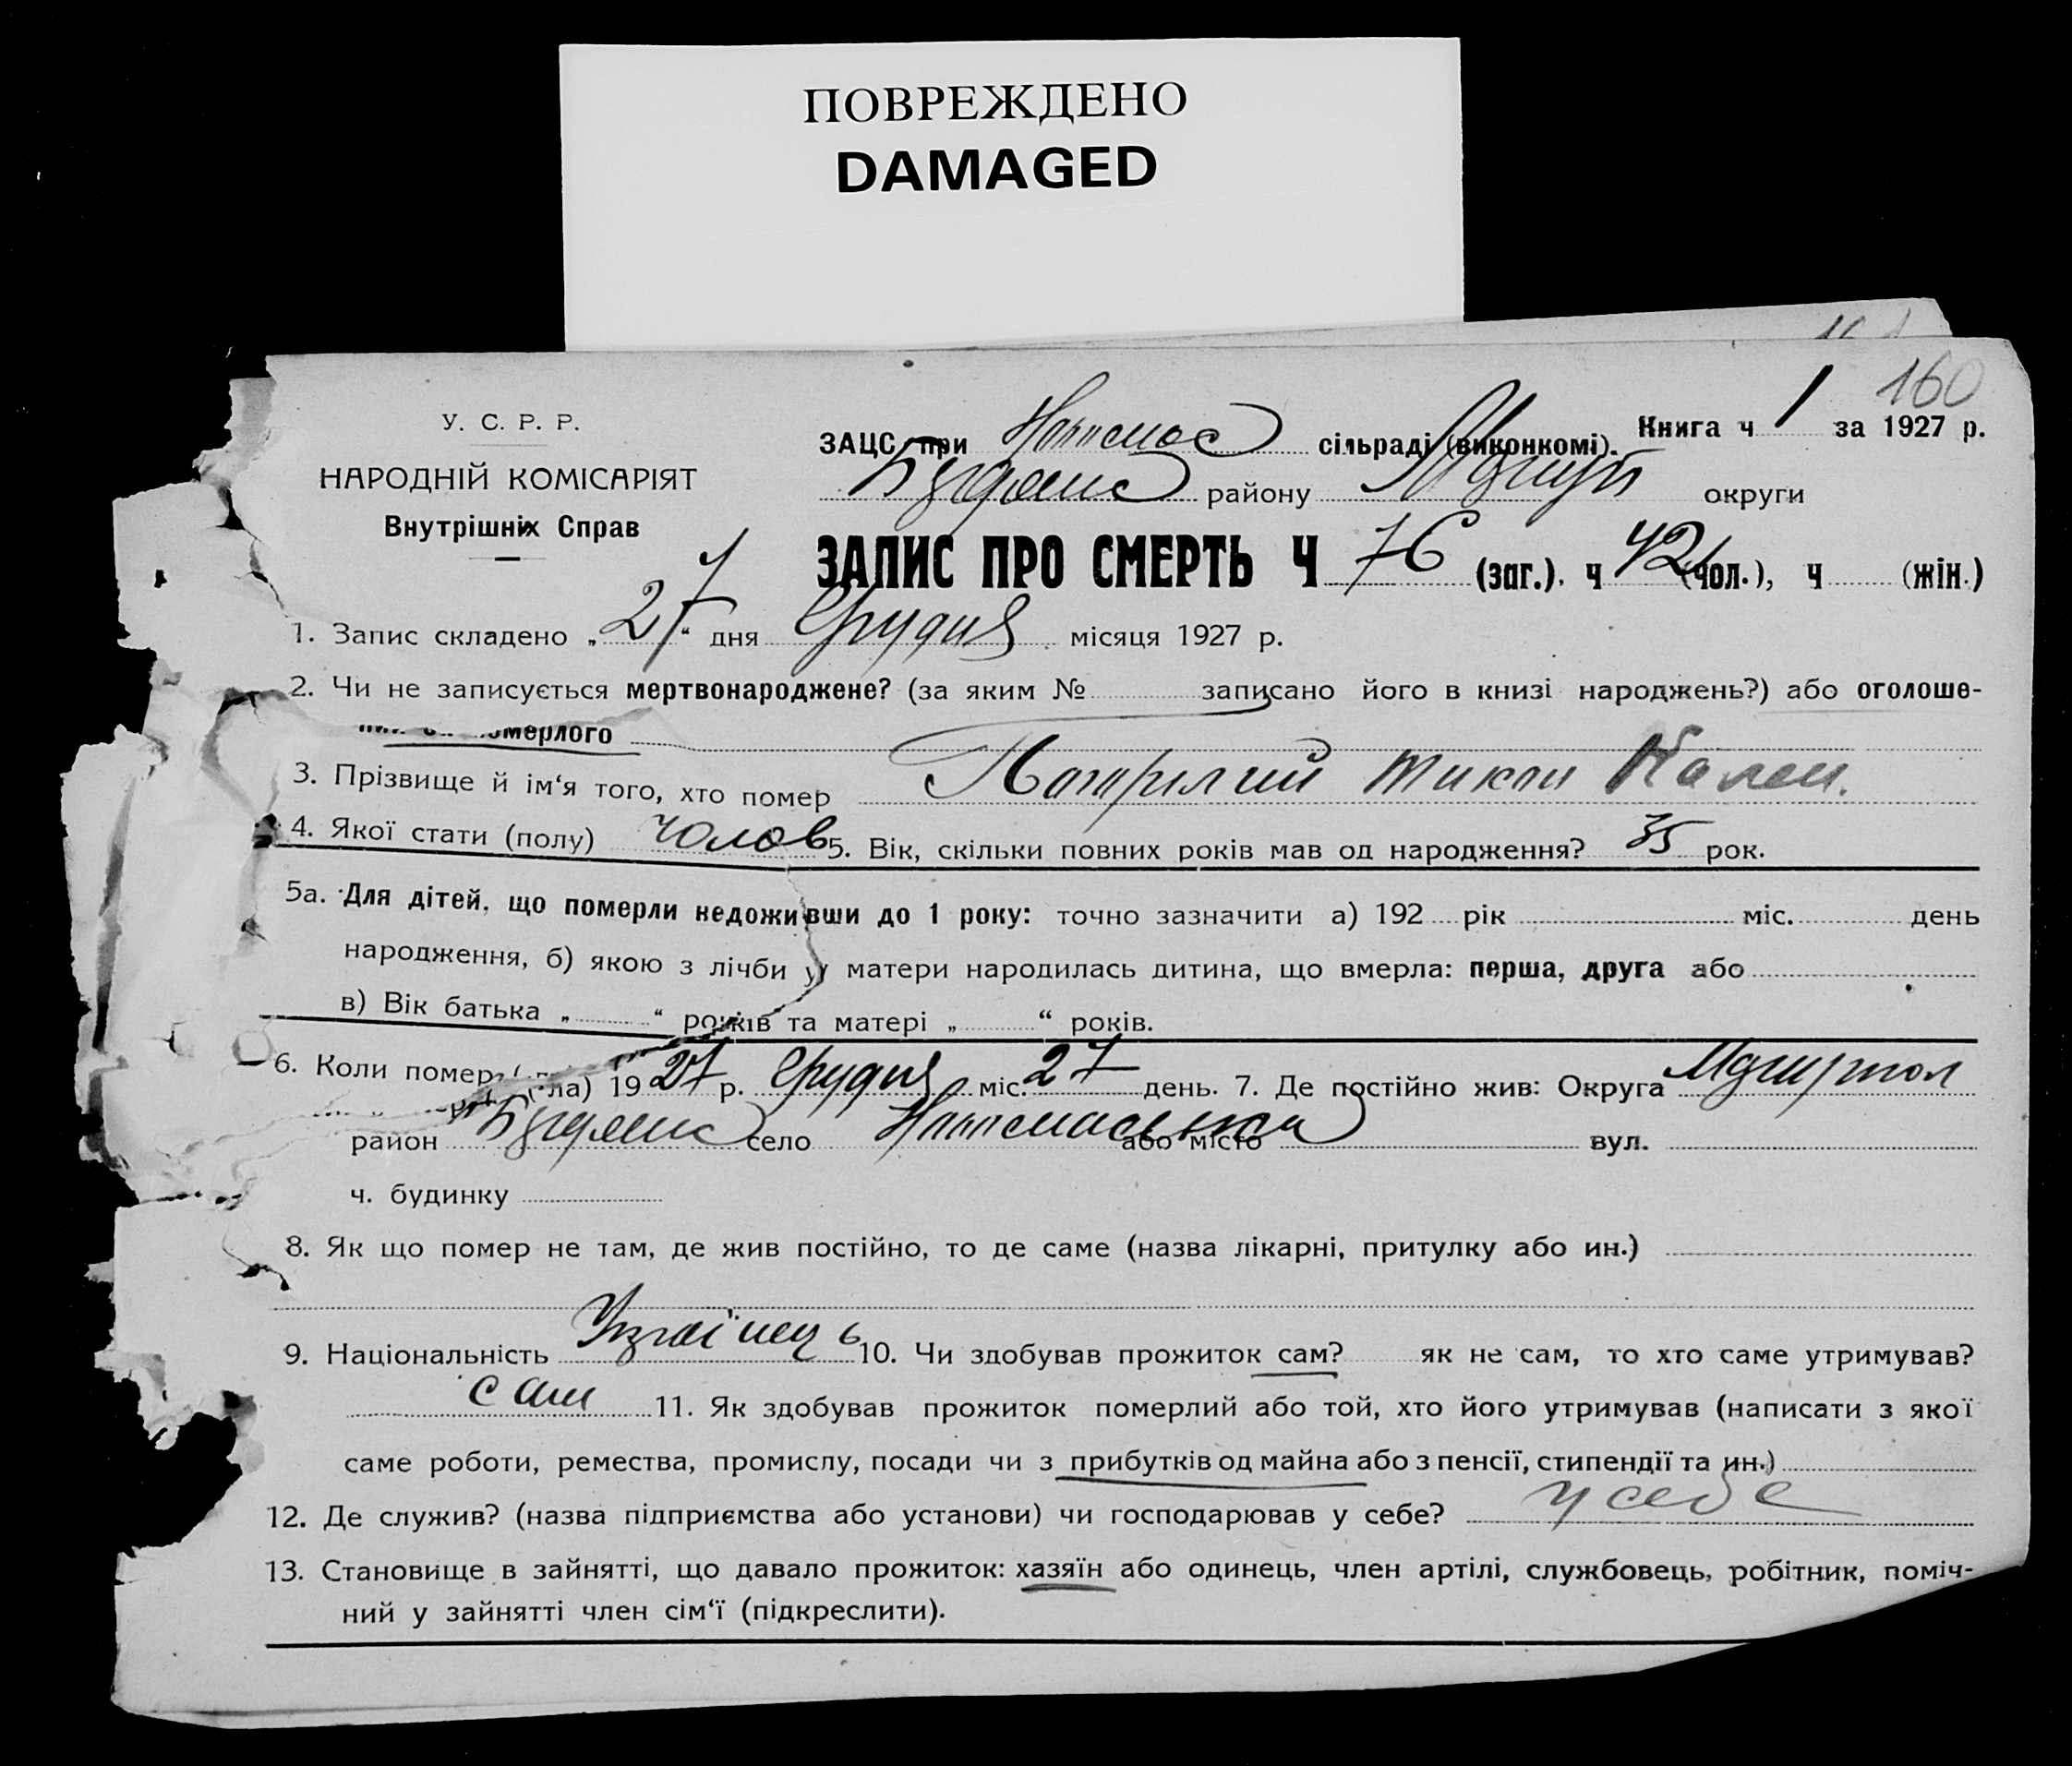 ПОВРЕЖДЕНО
DAMAGED
160
У. С. Р. Р.
НАРОДНІЙ КОМІСАРІЯТ
Внутрішніх Справ
ЗАЦС при сільраді (виконкомі).
Книга ч 1 за 1927 р.
району округи
ЗАПИС ПРО СМЕРТЬ Ч 76 (заг.). ч 42 (чол.), ч (жін.)
1. Запис складено „27“ дня Грудня місяця 1927 р.
2. Чи не записується мертвонароджене? (за яким № записано його в книзі народжень?) або оголоше-
померлого
3. Прізвище й ім‘я того, хто помер
4. Якої стати (полу) чолов 5. Вік, скільки повних років мав од народження? 35 рок.
5а. Для дітей, що померли недоживши до 1 року: точно зазначити а) 192 рік міс. день
народження, б) якою з лічби у матери народилась дитина, що вмерла: перша, друга або
в) Вік батька „ “ років та матері „ “ років.
6. Коли помер 1927 р. Грудня міс. 27 день. 7. Де постійно жив: Округа
район село або місто вул.
ч. будинку
8. Як що помер не там, де жив постійно, то де саме (назва лікарні, притулку або ин.)
9. Національність Українець 10. Чи здобував прожиток сам? як не сам, то хто саме утримував?
сам 11. Як здобував прожиток померлий або той, хто його утримував (написати з якої
саме роботи, ремества, промислу, посади чи з прибутків од майна або з пенсії, стипендії та ин.)
12. Де служив? (назва підприємства або установи) чи господарював у себе? у себе
13. Становище в зайнятті, що давало прожиток: хазяїн або одинець, член артілі, службовець, робітник, поміч-
ний у зайнятті член сім‘ї (підкреслити).